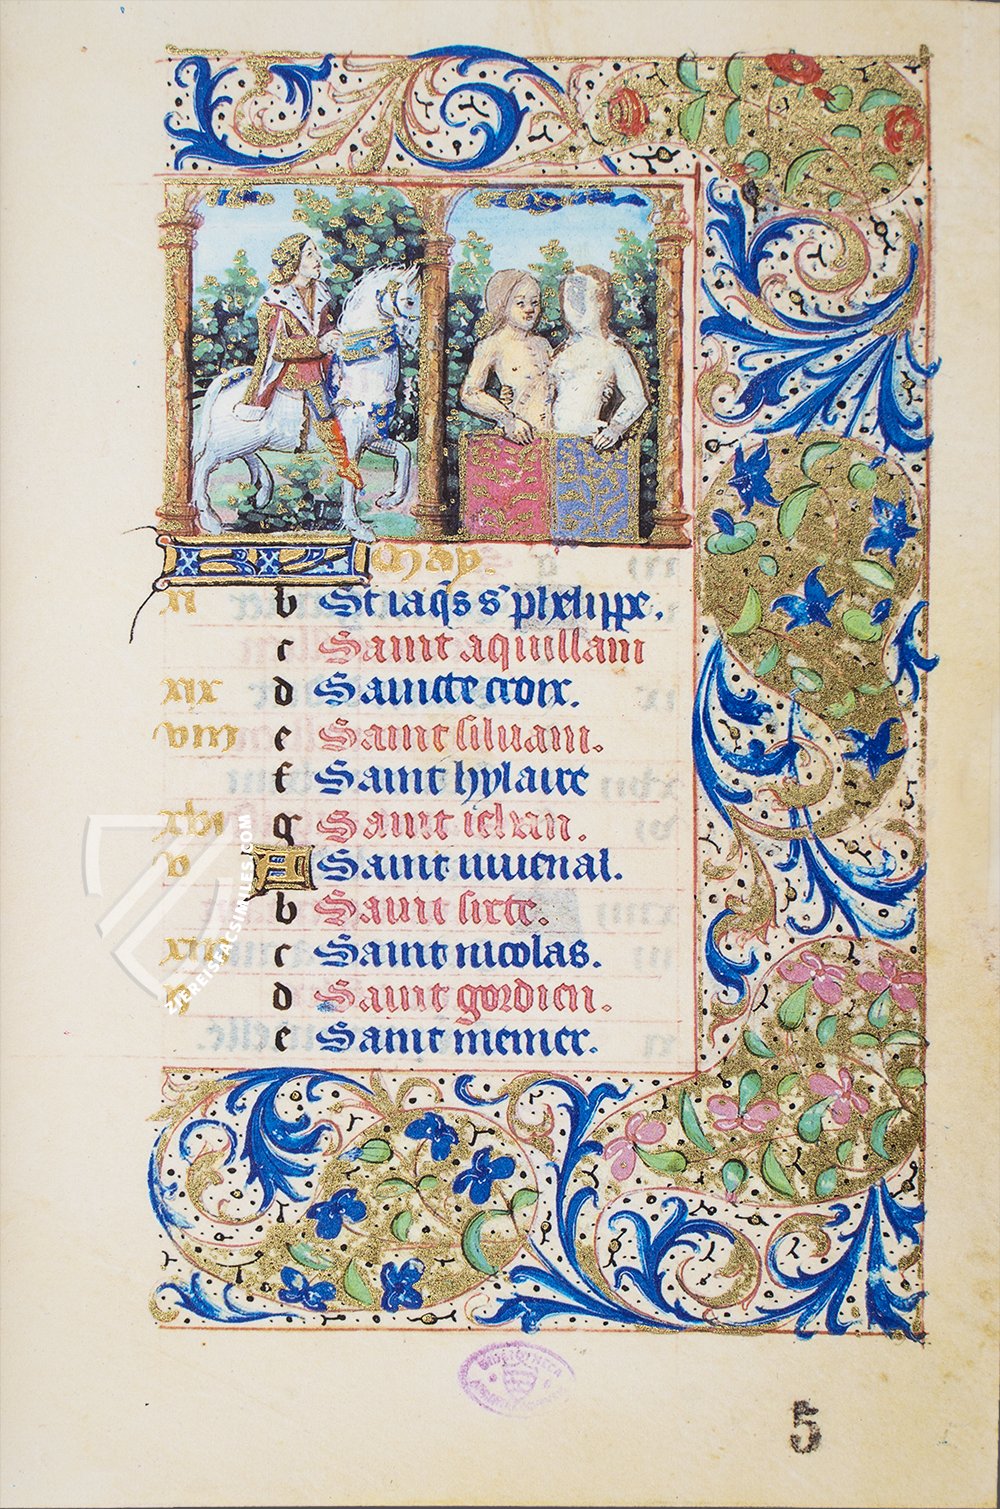 KL May.
xi b St iaqs st phelippe.
c Saint aquillain
xix d Saincte croix.
viii e Saint siluain.
f Saint hylaire
xvi g Saint iehan.
v A Saint iuuenal.
b Saint sixte.
xiii c Saint nicolas.
d Saint gordien.
e Saint memer.
BIBLIOTHECA
5
ZIEREIS FACSIMILES.COM